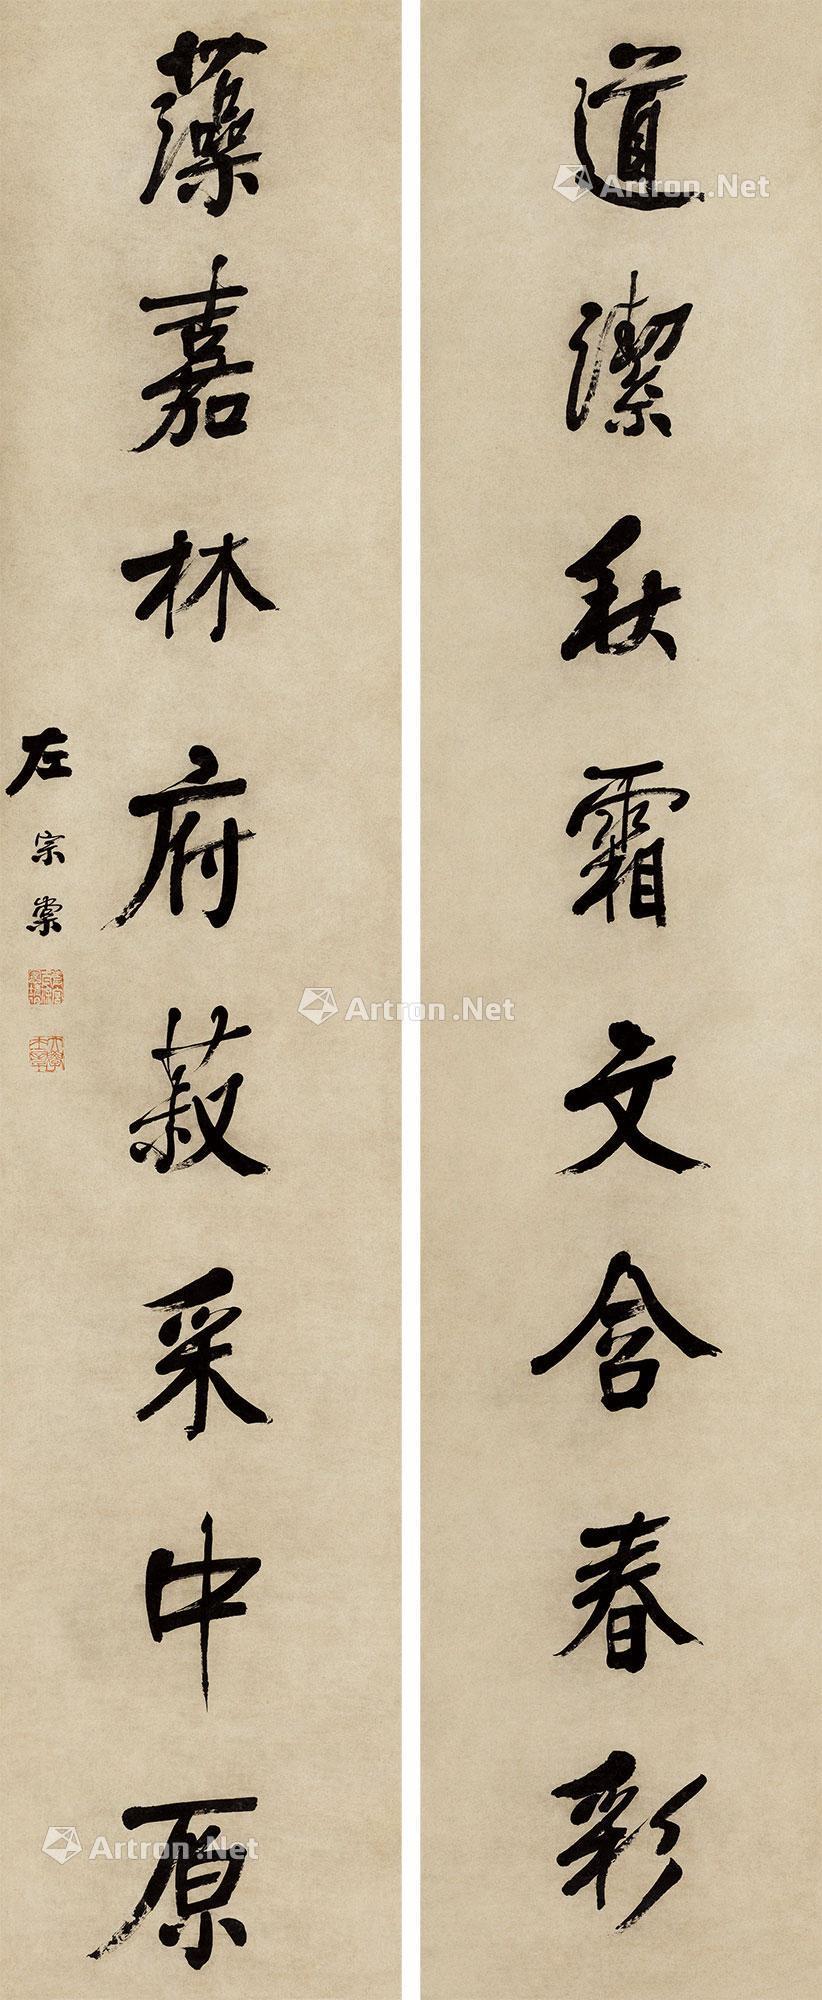 道潔秋霜文含春彩
藻嘉林府菽采中原
左宗棠
Artron.Net
Artron.Net
Artron.Net